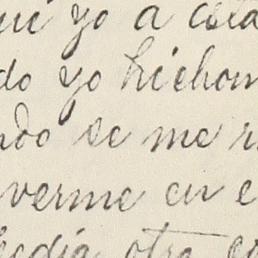 uí yo a esta
do yo hice hom
ndo se me r
verme en e
media otra